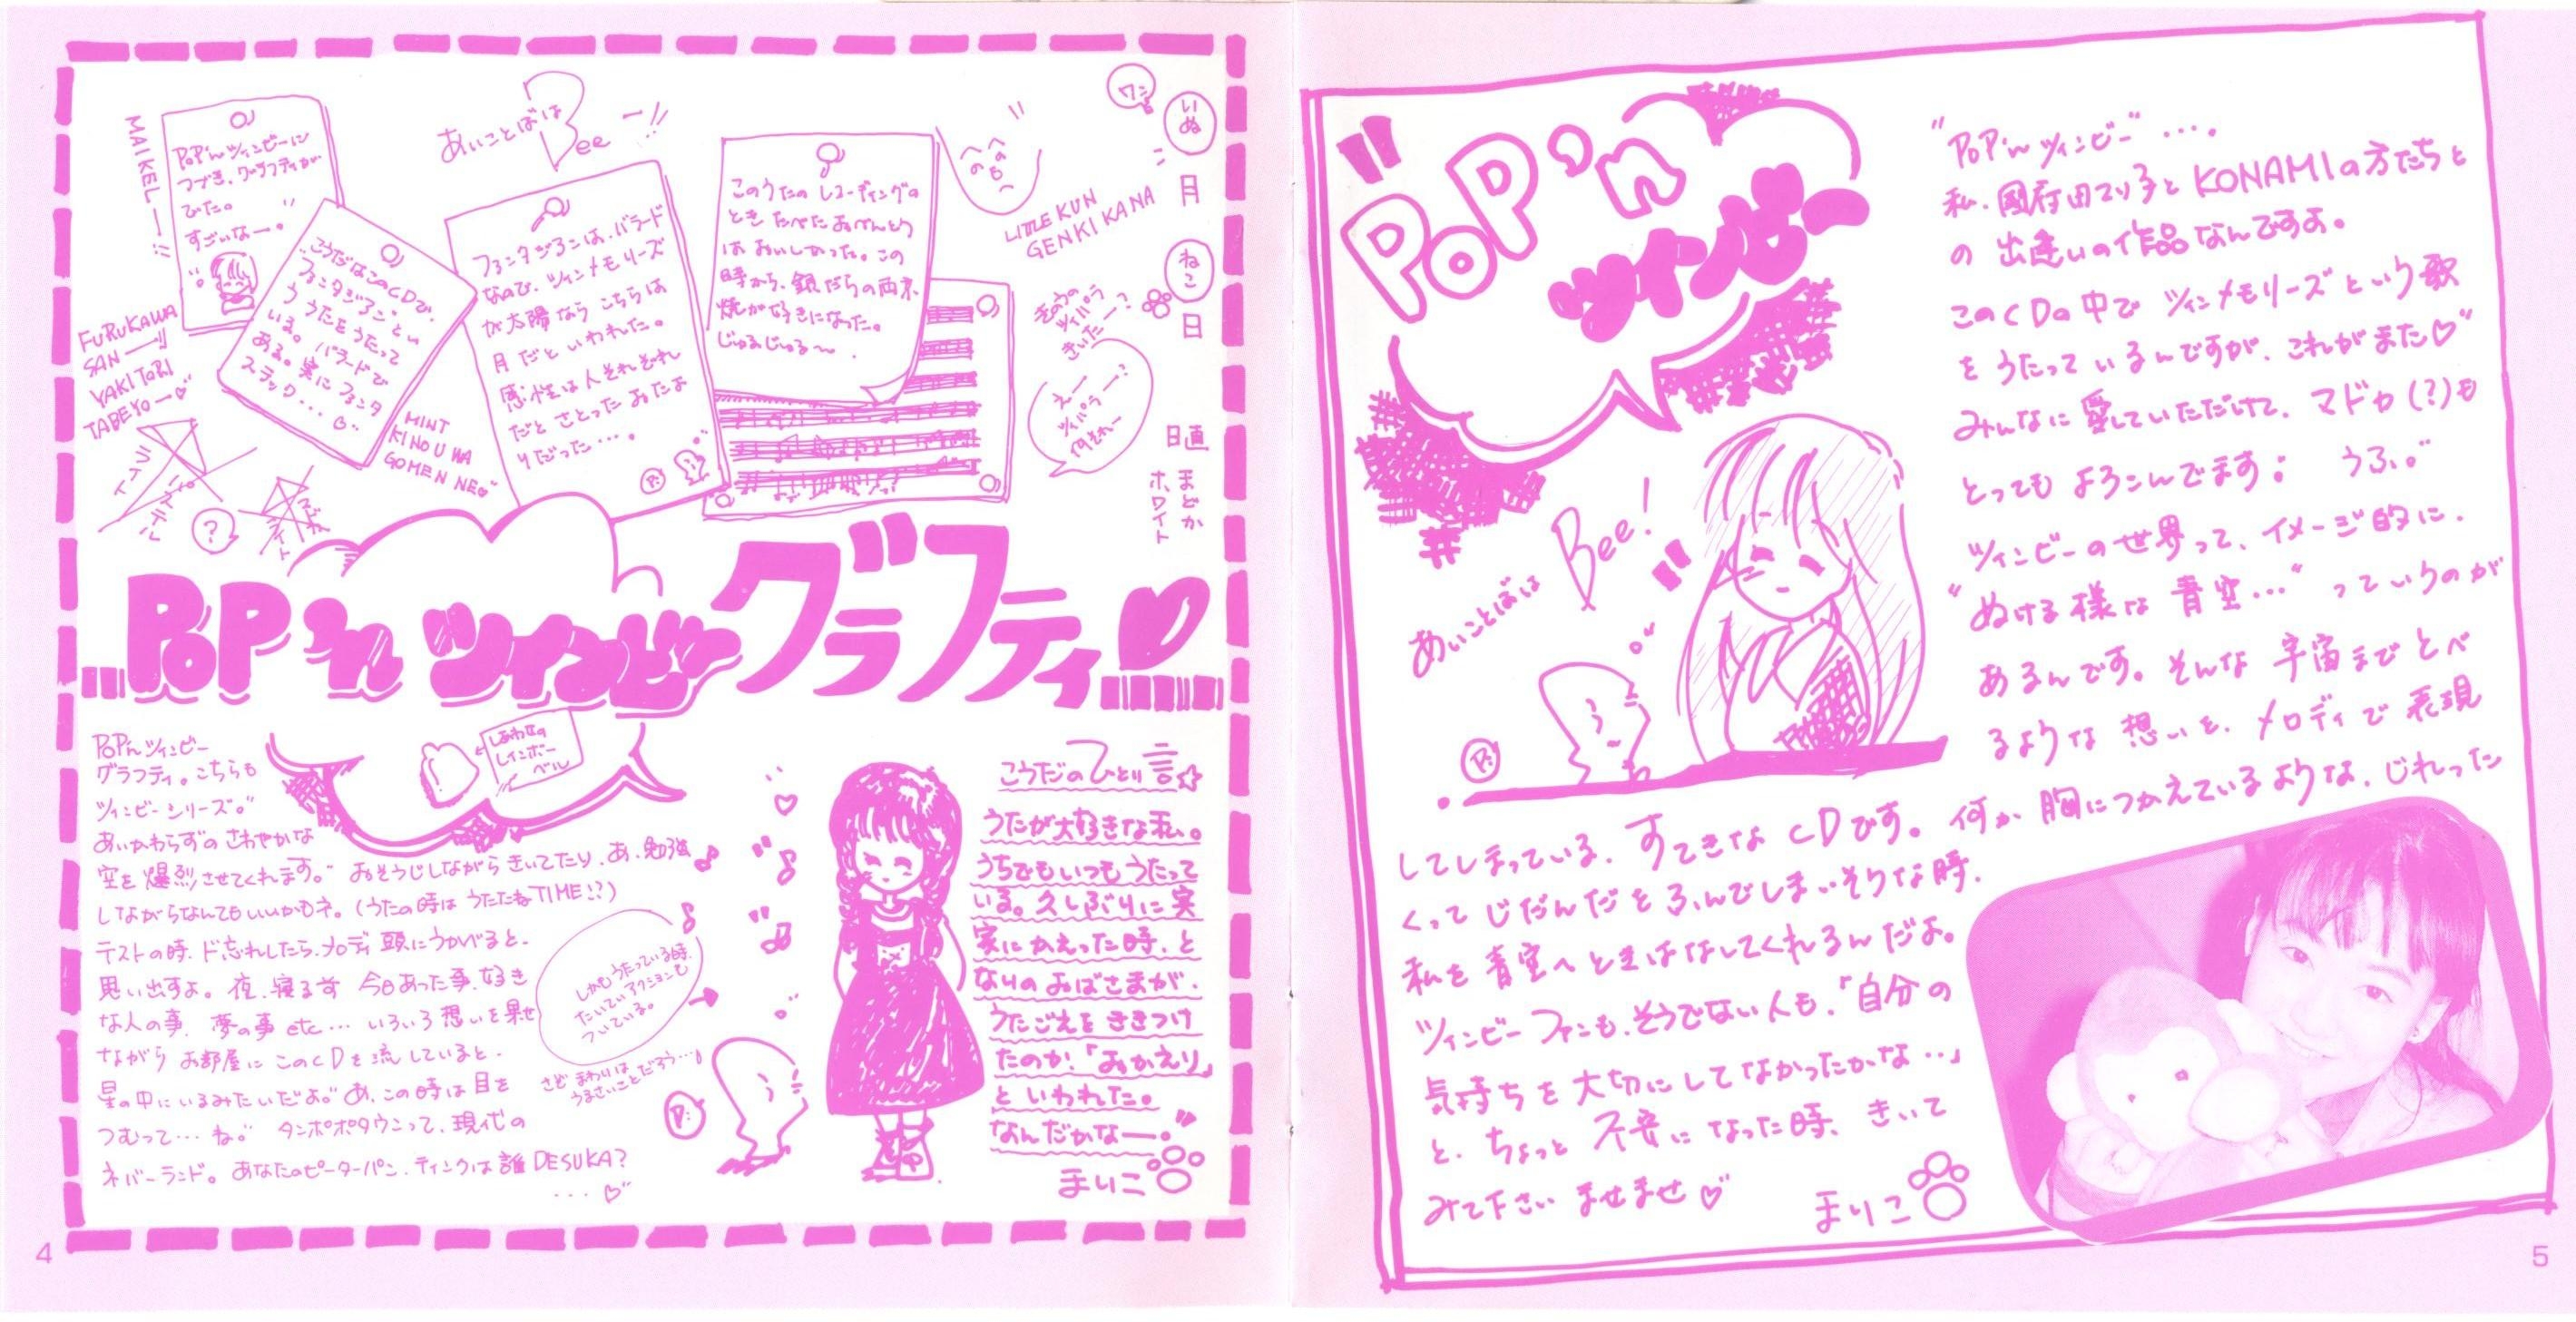 MAIKEL—!!
PoP'nツインビーに
つづき、グラフティが
でた。
すごいなー。
あいことばは Bee—!!
"こうだなこのCDで、
ファンタジアン"とい
ううたをうたって
いる。バラードで
ある。実にファンタ
スティック…♡
ファンタジアンは、バラード
なので、ツインメモリーズ
が太陽なら こちらは
月だといわれた。
感性は人それぞれ
だと さとった おたよ
りだった…。
このうたの レコーディングの
とき たべた おべんとう
は おいしかった。この
時から、銀だらの西京
焼が好きになった。
じゅるじゅる〜.
へのへのも
LITTLE KUN
GENKI KANA
ワン
いぬ 月 ねこ 日
日直 まどか
ホワイト
きのうの
ツイパラ
きいたー?
えー
ツイパラー?
何それー
FURUKAWA
SAN—!!
YAKITORI
TABEYO—♡
MINT
KINOU WA
GOMEN NE♡
ライト
パステル
?
ライト
PoP'n ツインビー グラフティ
しあわせの
レインボー
ベル
PoP'nツインビー
グラフティ。こちらも
ツインビーシリーズ。
あいかわらずの さわやかな
空を 爆烈させてくれます。 おそうじしながら きいてたり、あ、勉強
しながらなんてもいいかもネ。(うたの時は うたたねTIME!?)
テストの時、ド忘れしたら、メロディ 頭にうかべると、
思い出すよ。夜、寝る前 今日あった事、好き
な人の事、夢の事 etc… いろいろ 想いを馳せ
ながら お部屋に このCDを 流していると、
星の中にいるみたいだよ。あ、この時は 目を
つむって… ね。 タンポポタウンって、現代の
ネバーランド。あなたのピーターパン、ティンクは 誰 DESUKA?
…♡
しかもうたっている時、
たいていアクションも
ついている。
さぞ まわりは
うるさいことだろう…♪
こうだのひとり言☆
うたが大好きな私。
うちでもいつもうたって
いる。久しぶりに実
家にかえった時、と
なりのおばさまが、
うたごえを ききつけ
たのか、「おかえり」
と いわれた。
なんだかなー。
まりこ
4
"PoP'n
ツインビー"
あいことばは Bee!
"PoP'n ツインビー"….
私、國府田マリ子と KONAMIの方たちと
の 出逢いの作品なんですよ。
このCDの中で ツインメモリーズという歌
を うたって いるんですが、これがまた♡
みんなに 愛していただけて、マドカ(?)も
とっても よろこんでます。 うふ。
ツインビーの世界って、イメージ的に、
"ぬける様な 青空…" っていうのが
あるんです。そんな 宇宙まで とべ
るような 想いを、メロディで 表現
してしまっている、すてきな CDです。何か 胸につかえているような、じれった
くって じだんだ を ふんでしまいそうな時、
私を 青空へ ときはなしてくれるんだよ。
ツインビーファンも、そうでない人も、「自分の
気持ちを 大切にして なかったかな…」
と、ちょっと 不安に なった時、きいて
みて下さい ませませ♡
まりこ
5